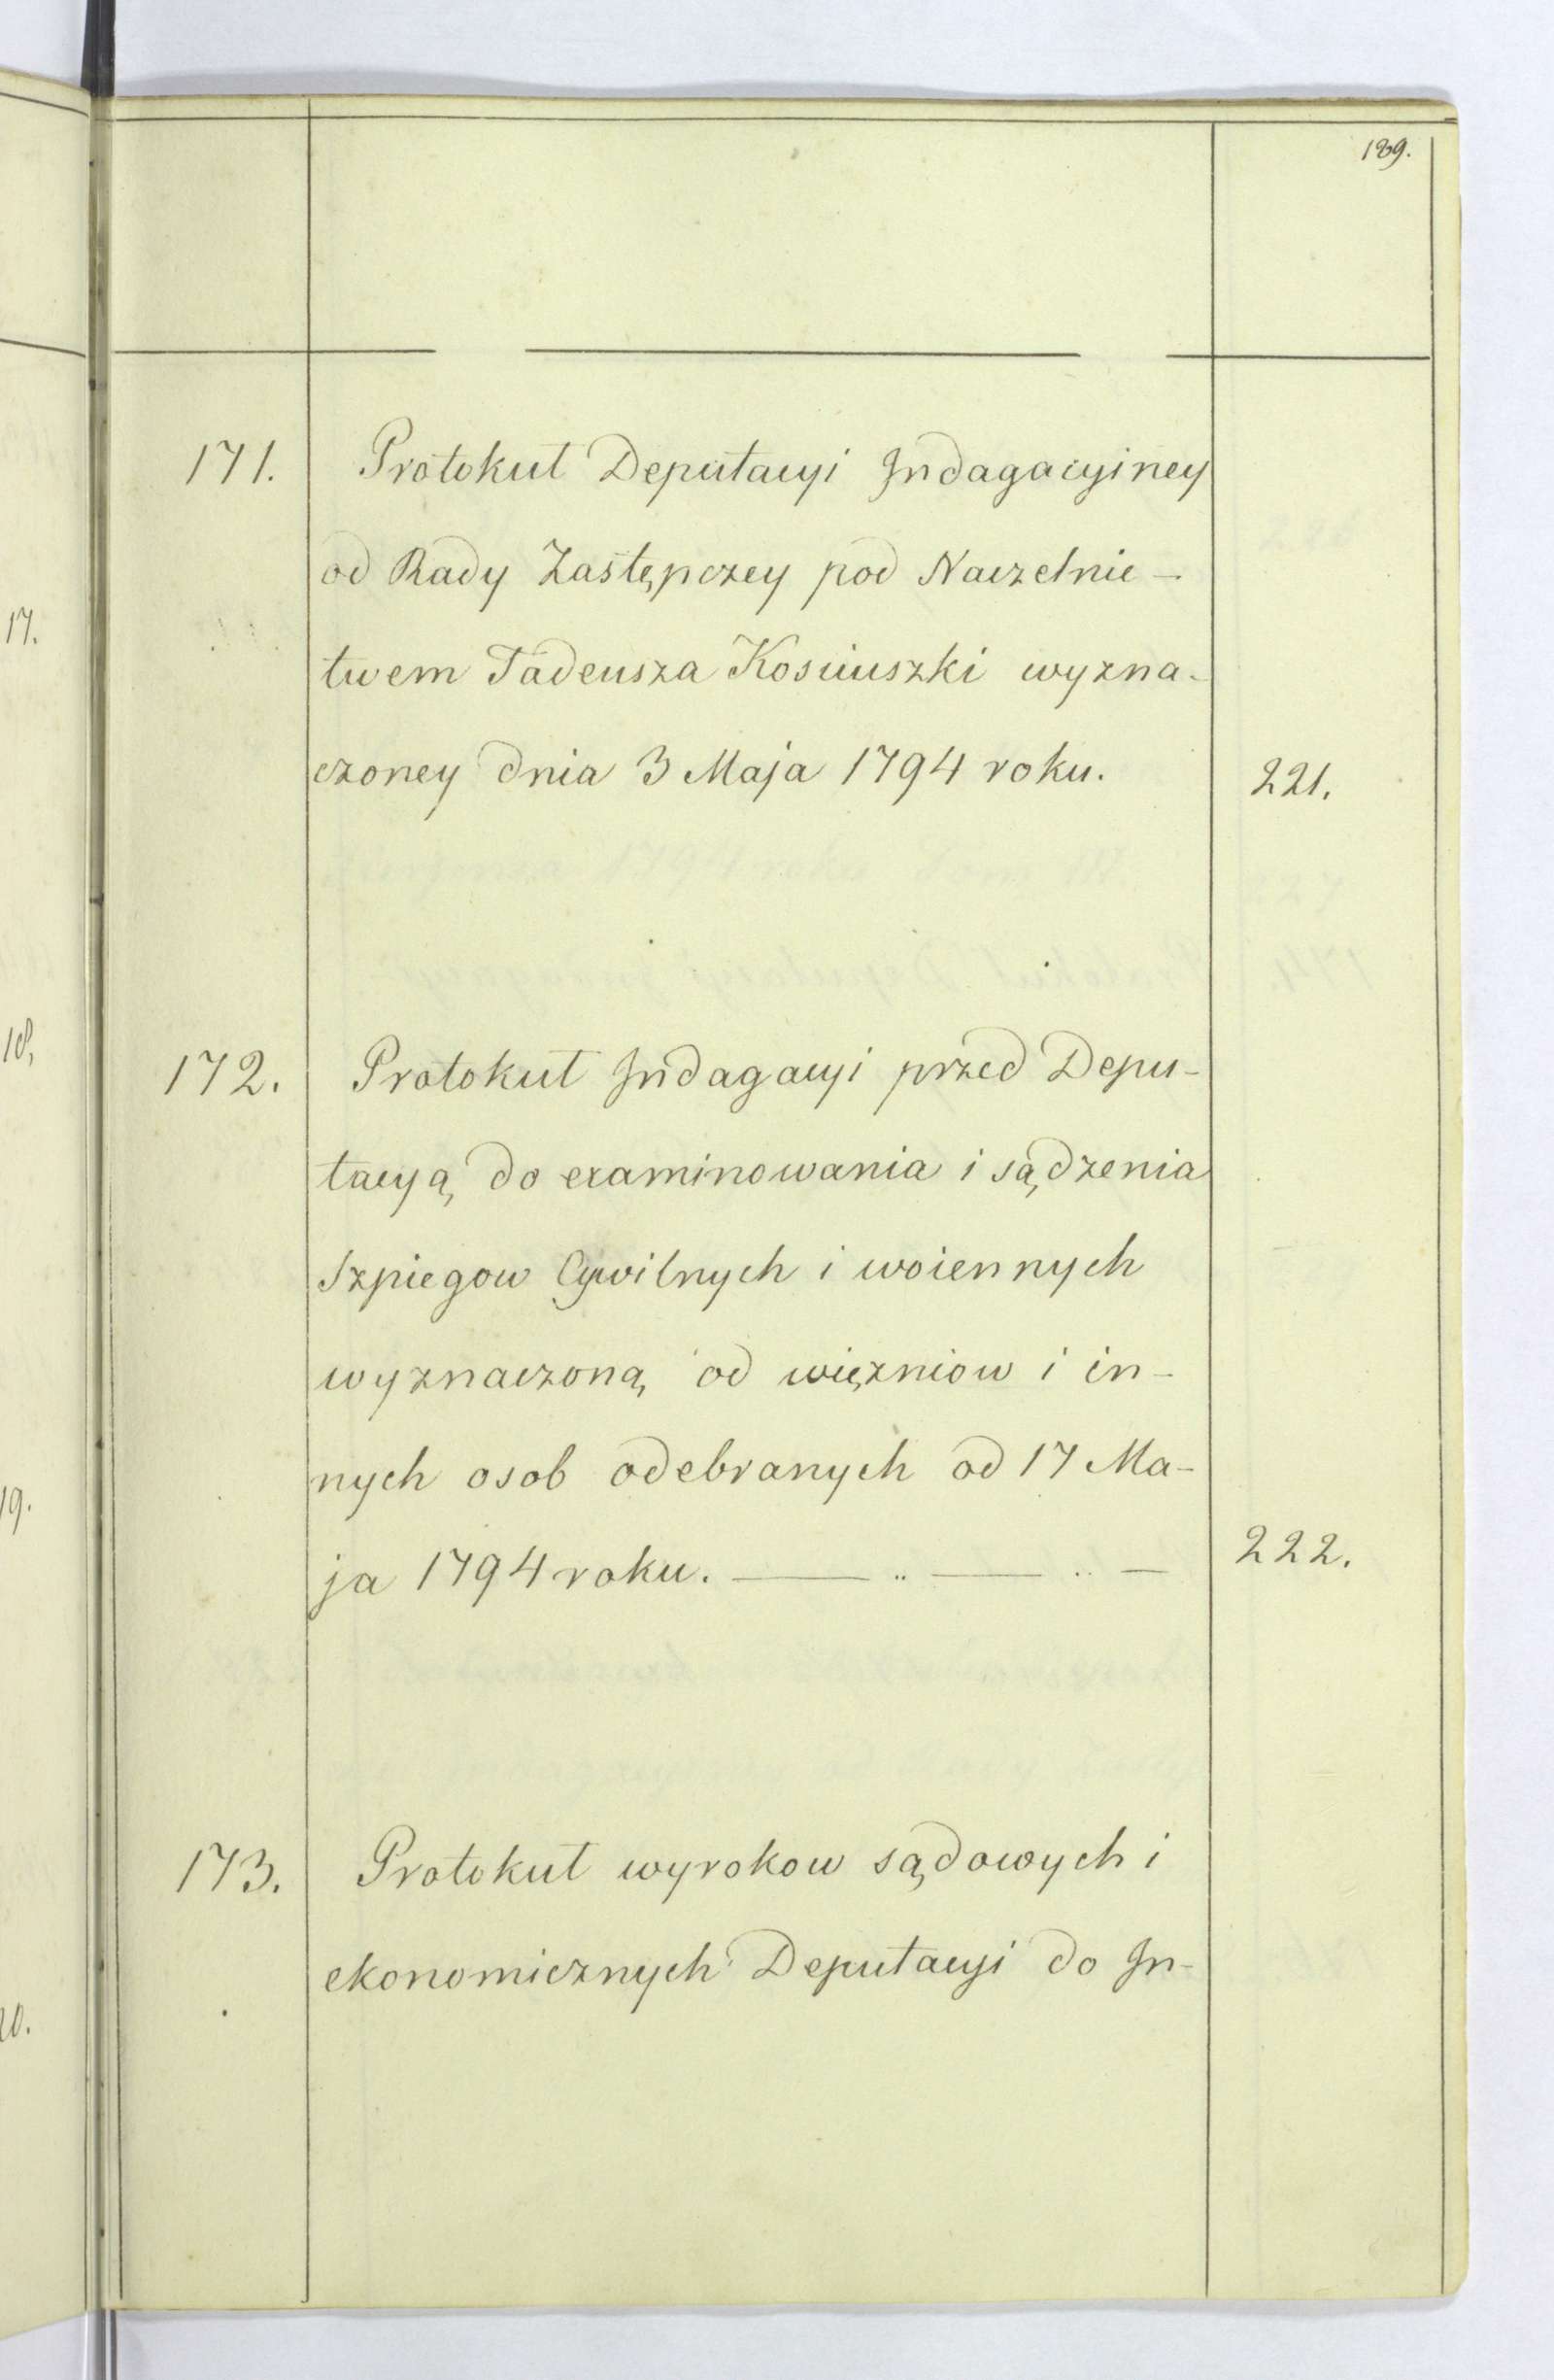 189.
171. Protokuł Deputacyi Indagacyiney
od Rady Zastępczey pod Naczelnic-
twem Tadeusza Kosciuszki wyzna-
czoney dnia 3 Maja 1794 roku. 221.
172. Protokuł Indagacyi przed Depu-
tacyą do examinowania i sądzenia
Szpiegow Cywilnych i woiennych
wyznaczoną od więzniow i in-
nych osob odebranych od 17 Ma-
ja 1794 roku. — .. — .. — 222.
173. Protokuł wyrokow sądowych i
ekonomicznych Deputacyi do In-
17.
18.
19.
20.